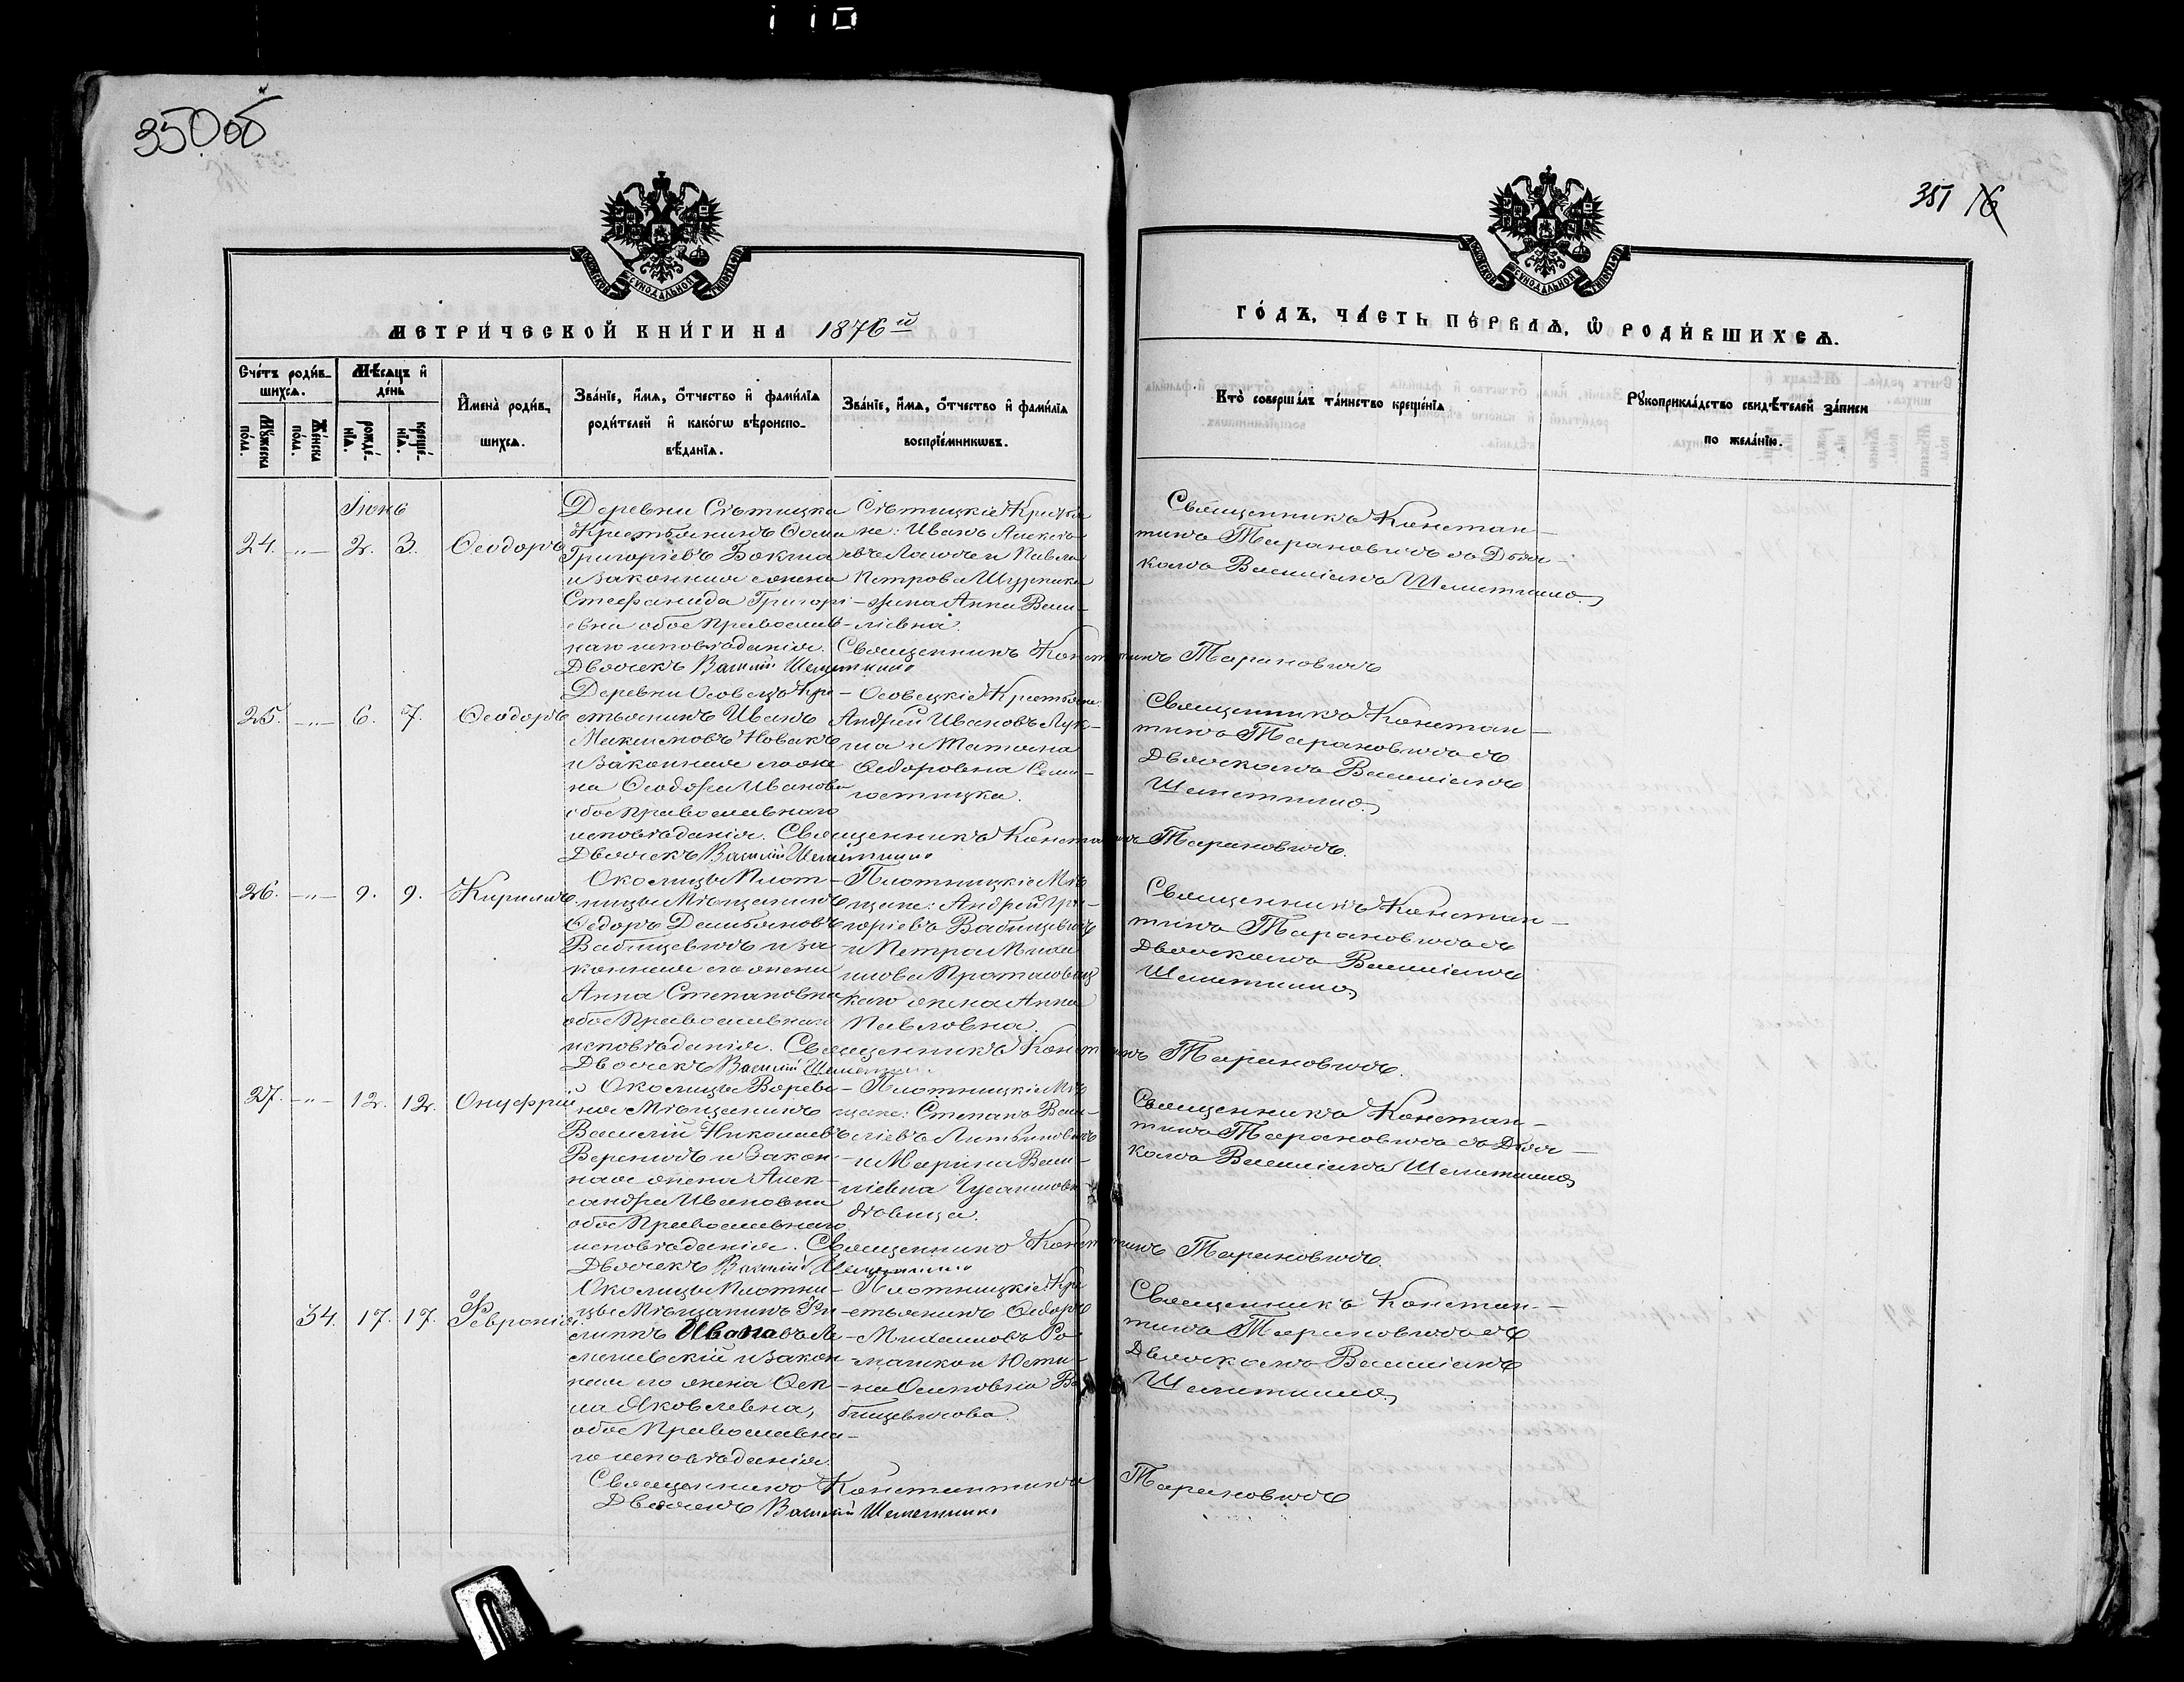 350 об
351 16
МЕТРИ́ЧЕСКОЙ КНИ́ГИ НА 1876 й
ГО́ДЪ, ЧА́СТЬ ПЕ́РВАѦ, Ѿ РОДИ́ВШИХСѦ.
Сче́тъ роди́в-
шихсѧ.
Мꙋ́жеска по́ла.
Же́нска по́ла.
Мѣ́сѧцъ и҆ де́нь
рожде́-нїѧ.
креще́-нїѧ.
И҆мена̀ роди́в-
шихсѧ.
Зва́нїе, и҆́мѧ, о҆́тчество и҆ фами́лїѧ
роди́телей и҆ како́гѡ вѣроиспо-
вѣ́данїѧ.
Зва́нїе, и҆́мѧ, о҆́тчество и҆ фами́лїѧ
воспрїе́мникѡвъ.
Кто̀ соверша́лъ та́инство креще́нїѧ
Рꙋкоприкла́дство свидѣ́телей за́писи
по жела́нїю.
Іюнь
24. -"- 2. 3. Ѳеодоръ
Деревни Сѣтицка
Крестьянинъ Ѳома
Григоріевъ Бокша
и законная жена
Стефанида Григорі-
евна обое Православ-
наго исповѣданія.
Сѣтицкіе Крестья
не: Иванъ Алексѣ
евъ и Павла
Петрова
жена Анна Васи-
ліевна.
Священникъ Констан-
тинъ Тарановичъ съ Дьяч-
комъ Василіемъ Шеметилло.
Священникъ Константинъ Тарановичъ
Дьячекъ Василій Шеметилло
25. -"- 6. 7. Ѳеодоръ
Деревни Осовецъ Кре-
стьянинъ Иванъ
Максимовъ Новакъ
и законная его же
на Ѳеодора Иванова
обое Православнаго
исповѣданія.
Осовецкіе Крестьяне:
Андрей Ивановъ Лук-
ша и Татьяна
Ѳедоровна Семи-
гостицка.
Священникъ Констан-
тинъ Тарановичъ съ
Дьячкомъ Василіемъ
Шеметилло.
Священникъ Константинъ Тарановичъ.
Дьячекъ Василій Шеметилло
26. -"- 9. 9. Кириллъ.
Околицы Плот-
ницы Мѣщанинъ
Ѳедоръ Демьяновъ
Вабищевичъ и за-
конная его жена
Анна Степановна
обое Православнаго
исповѣданія.
Плотницкіе Мѣ
щане: Андрей Гри-
горіевъ Вабищевичъ
и Петра Миха
илова Протасовиц
каго жена Анна
Павловна.
Священникъ Констан-
тинъ Тарановичъ съ
Дьячкомъ Василіемъ
Шеметилло
Священникъ Константинъ Тарановичъ.
Дьячекъ Василій Шеметилло
27. -"- 12. 12. Онуфрій
Околицы Вореви-
чъ Мѣщанинъ
Василій Николаевъ
Вереничъ и закон-
ная жена Алек-
сандра Ивановна
обое Православнаго
исповѣданія.
Плотницкіе Мѣ
щане: Степанъ Васи-
ліевъ Литвиновичъ
и Марина Васи-
ліевна
дѣвица.
Священникъ Констан-
тинъ Тарановичъ съ Дьяч-
комъ Василіемъ Шеметилло
Священникъ Константинъ Тарановичъ.
Дьячекъ Василій Шеметилло
34. 17. 17. Февронія.
Околицы Плотни-
цы Мѣщанинъ Фи
липпъ Ивановъ
и закон
ная его жена Ѳек-
ла Яковлевна,
обое Православна-
го исповѣданія.
Плотницкіе: Кре
стьянинъ Ѳедоръ
Михаиловъ Ро
машко и Юсти-
на Осиповна Ва
бищевичова.
Священникъ Констан-
тинъ Тарановичъ съ
Дьячкомъ Василіемъ
Шеметилло
Священникъ Константинъ Тарановичъ
Дьячекъ Василій Шеметилло